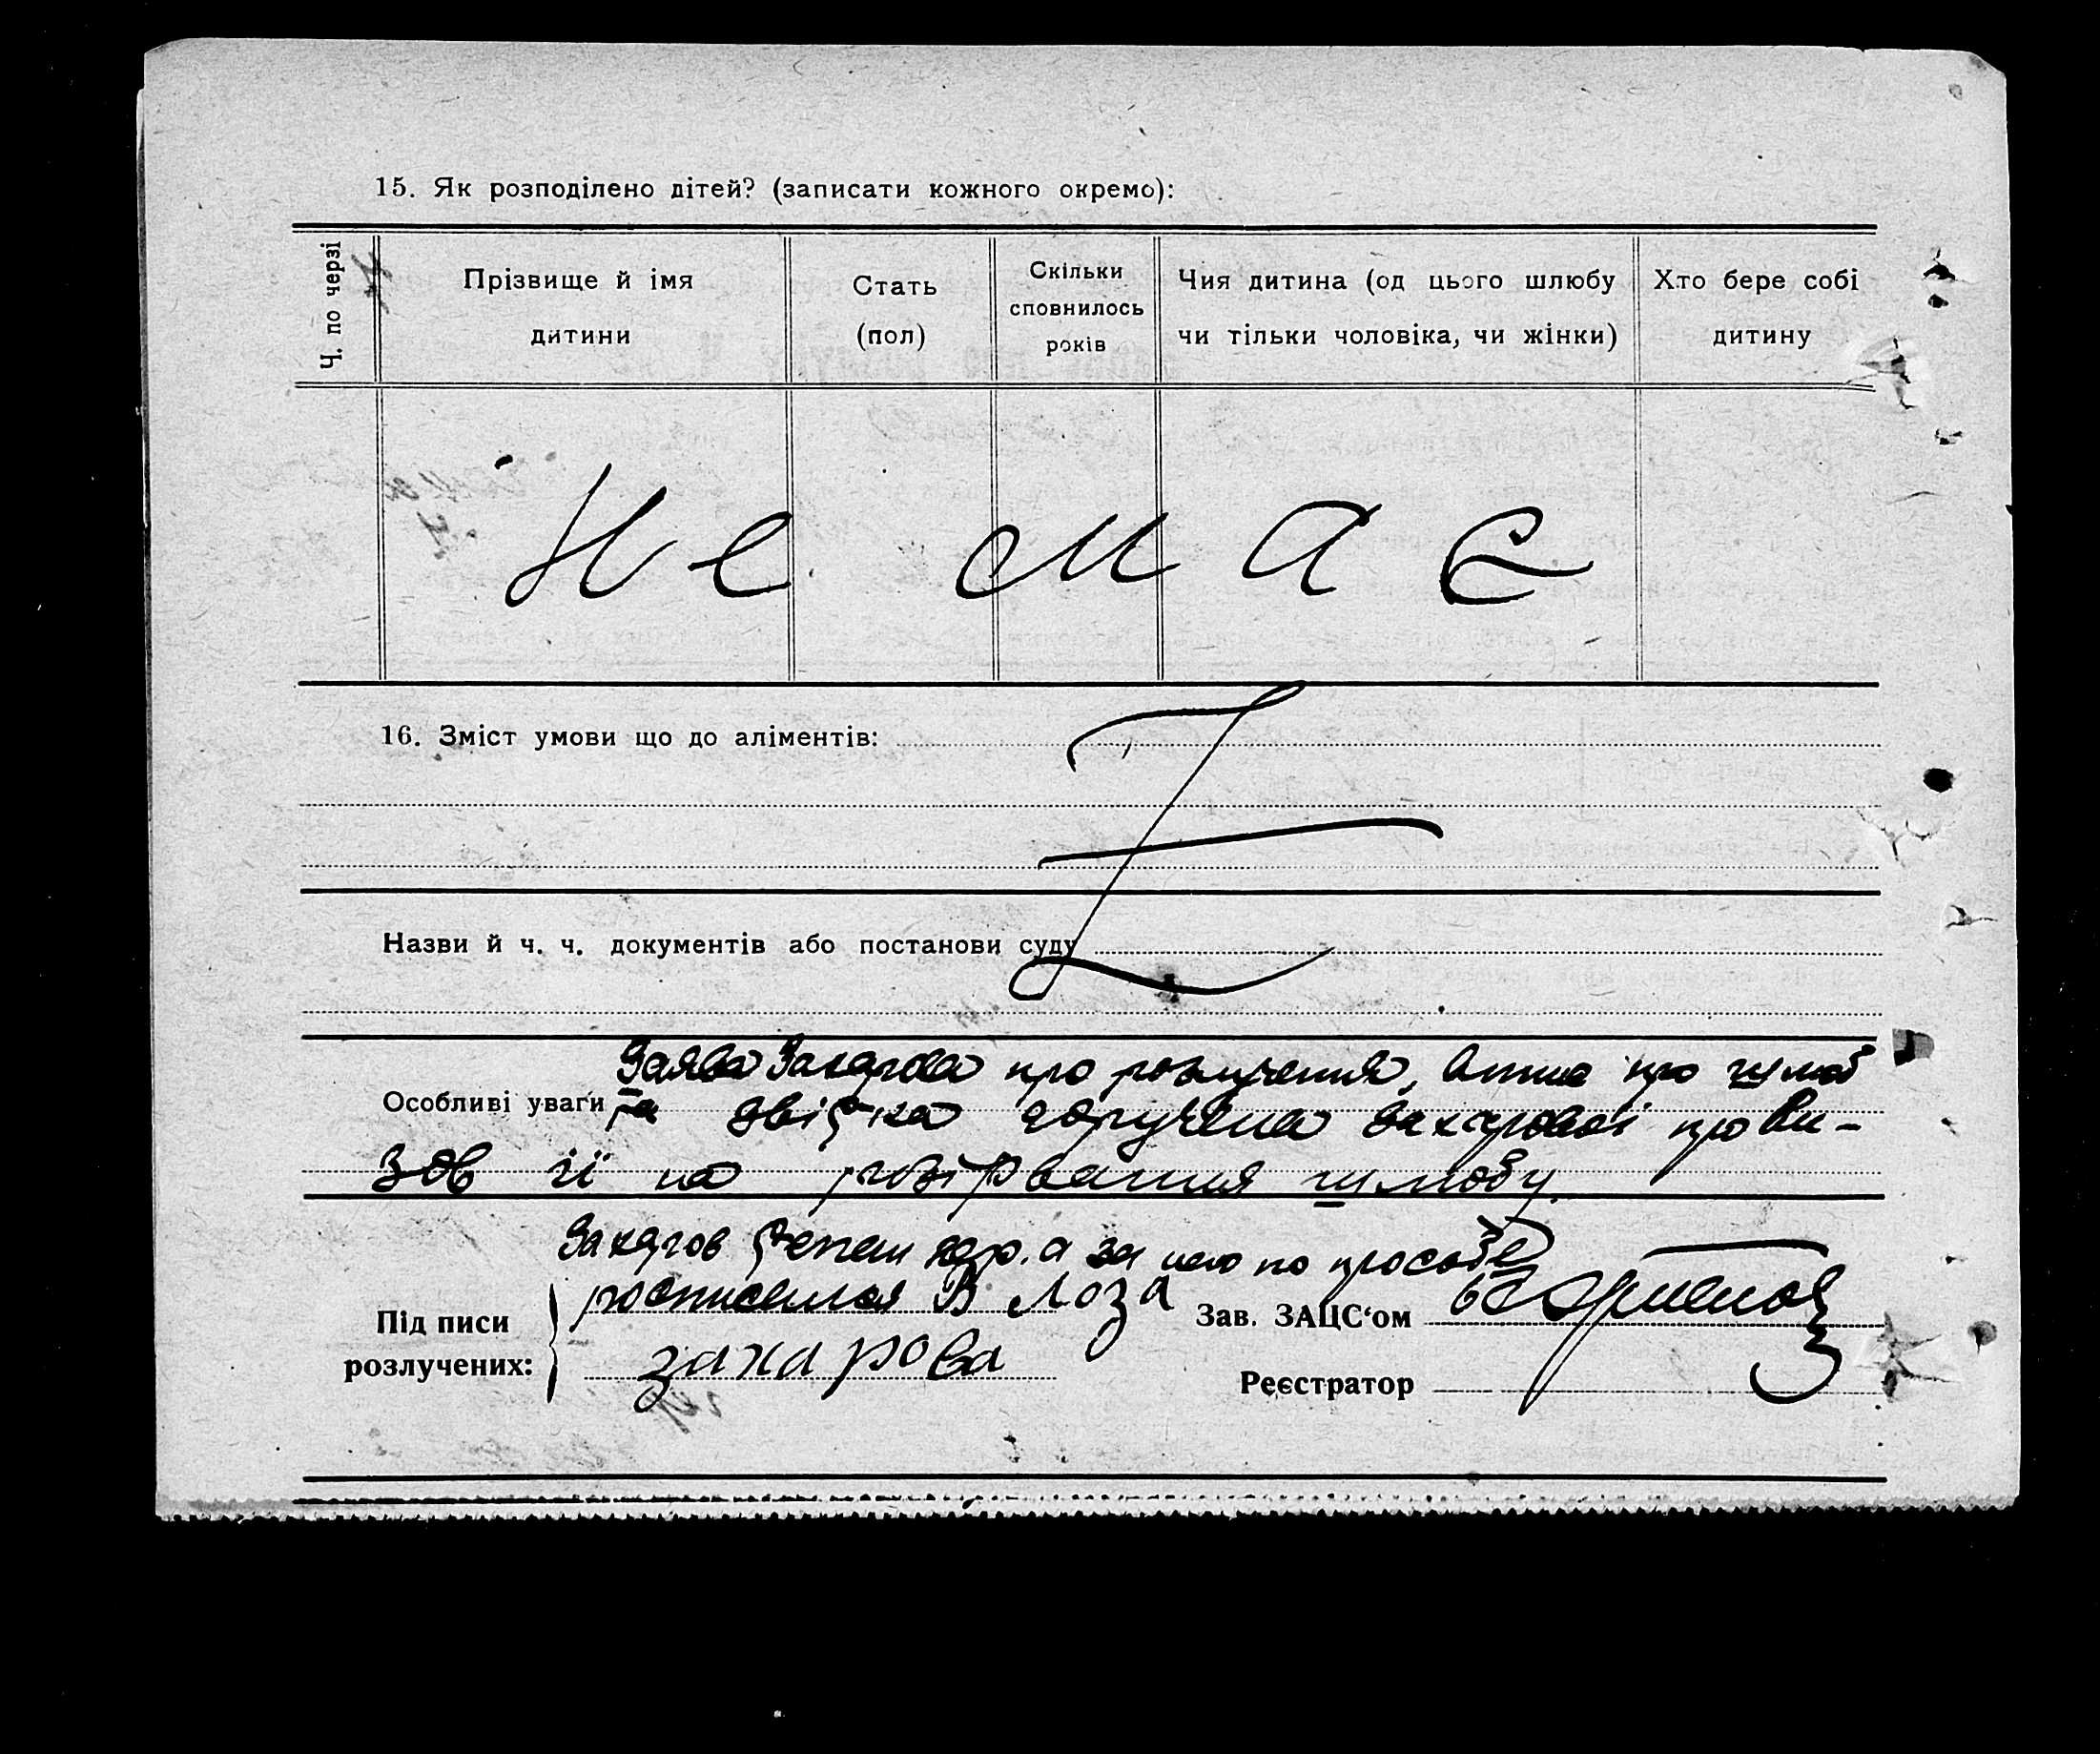 15. Як розподілено дітей? (записати кожного окремо):
Ч. по черзі
Прізвище й імя дитини
Стать (пол)
Скільки сповнилось років
Чия дитина (од цього шлюбу чи тільки чоловіка, чи жінки)
Хто бере собі дитину
Не має
16. Зміст умови що до аліментів:
Назви й ч. ч. документів або постанови суду
Заява Захарова про розлучення, про шлюб
Особливі уваги та звістка доручена Захаровой про ви-
зов її на розірвання шлюбу.
Захаров Степан а за него по прозбе
росписался В Лоза
Зав. ЗАЦС‘ом
Під писи розлучених:
захарова
Реєстратор